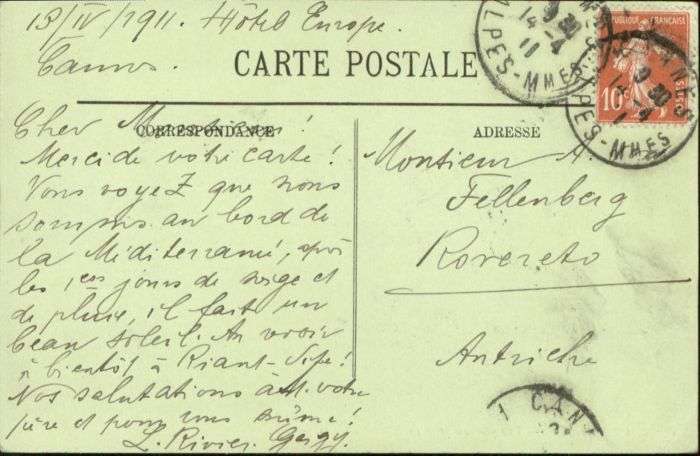 13/IV/1911. Hôtel Europe.
Cannes.
CARTE POSTALE
CORRESPONDANCE
ADRESSE
RÉPUBLIQUE FRANÇAISE
10c
POSTES
ALPES-MMES
14-4
11
CANNES
ALPES-MMES
Cher Monsieur!
Merci de votre carte!
Vous voyez que nous
sommes au bord de
la Méditerrané, après
les 1ers jours de neige et
de pluie, il fait un
beau soleil. Au revoir
à bientôt à Riant-
Nos salutations à votre
père et pour vous même!
L. Rivier
Monsieur A.
Fellenberg
Rovereto
Autriche
CAN